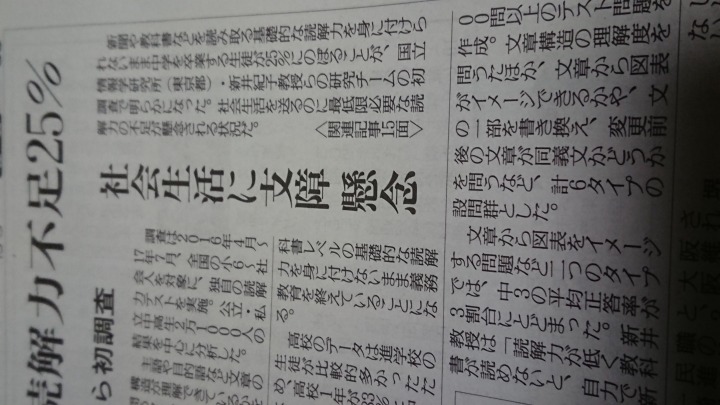 読解力不足25%
ら初調査
社会生活に支障懸念
新聞や教科書などを読み取る基礎的な読解力を身に付けら
れないまま中学を卒業する生徒が25%にのぼることが、国立
情報学研究所(東京都)・新井紀子教授らの研究チームの初
調査で明らかになった。社会生活を送るのに最低限必要な読
解力の不足が懸念される状況だ。
〈関連記事15面〉
調査は2016年4月~
17年7月、全国の小6~社
会人を対象に、独自の読解
力テストを実施。公立・私
立中高生2万1000人の
結果を中心に分析した。
主語や目的語など文章の
構造が理解できているか
00問以上のテスト問題を
作成。文章構造の理解度を
問うたほか、文章から図表
がイメージできるかや、文
の一部を書き換え、変更前
後の文章が同義文かどうか
を問うなど、計6タイプの
設問群とした。
文章から図表をイメージ
する問題など二つのタイプ
では、中3の平均正答率が
3割台にとどまった。新井
教授は「読解力が低く教科
書が読めないと、自力で新
科書レベルの基礎的な読解
力を身に付けないまま義務
教育を終えていることにな
る。
高校のデータは進学校の
生徒が比較的多かったた
め、高校1年が83%